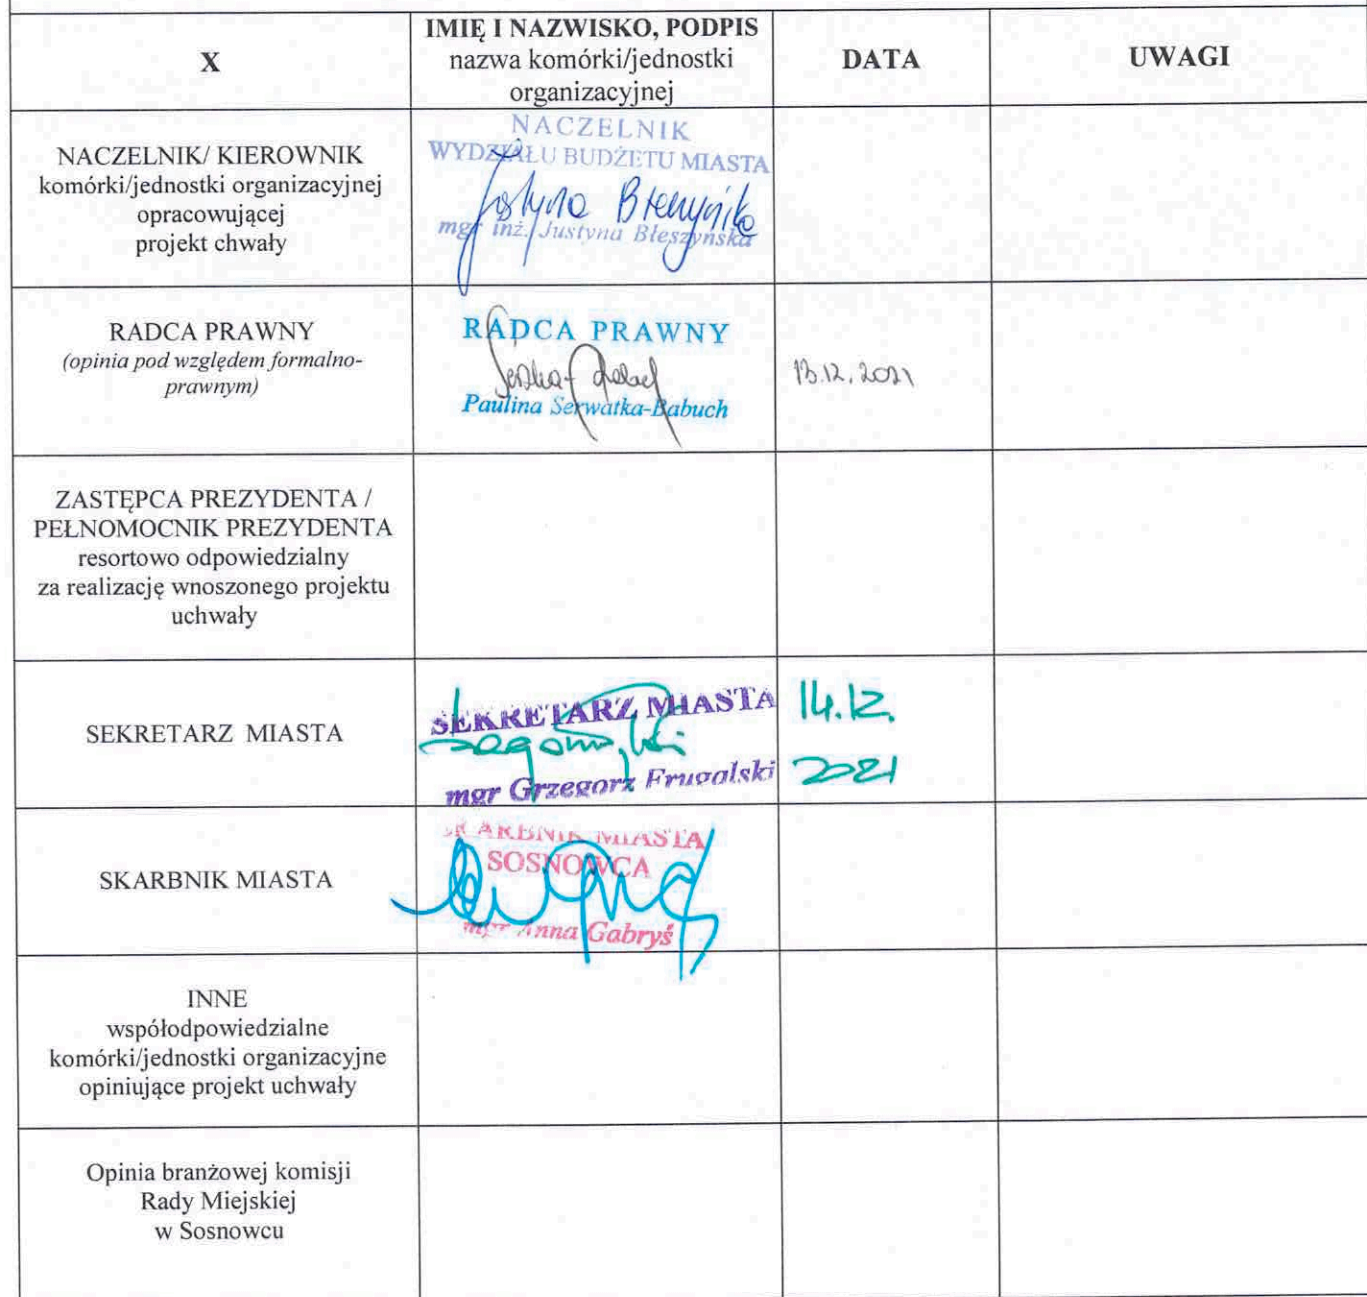 X
IMIĘ I NAZWISKO, PODPIS
nazwa komórki/jednostki
organizacyjnej
DATA
UWAGI
NACZELNIK/ KIEROWNIK
komórki/jednostki organizacyjnej
opracowującej
projekt chwały
NACZELNIK
WYDZIAŁU BUDŻETU MIASTA
Justyna Błeszyńska
mgr inż. Justyna Błeszyńska
RADCA PRAWNY
(opinia pod względem formalno-
prawnym)
RADCA PRAWNY
Paulina Serwatka-Babuch
13.12.2021
ZASTĘPCA PREZYDENTA /
PEŁNOMOCNIK PREZYDENTA
resortowo odpowiedzialny
za realizację wnoszonego projektu
uchwały
SEKRETARZ MIASTA
SEKRETARZ MIASTA
mgr Grzegorz Frugalski
14.12.
2021
SKARBNIK MIASTA
SKARBNIK MIASTA
SOSNOWCA
mgr Anna Gabryś
INNE
współodpowiedzialne
komórki/jednostki organizacyjne
opiniujące projekt uchwały
Opinia branżowej komisji
Rady Miejskiej
w Sosnowcu